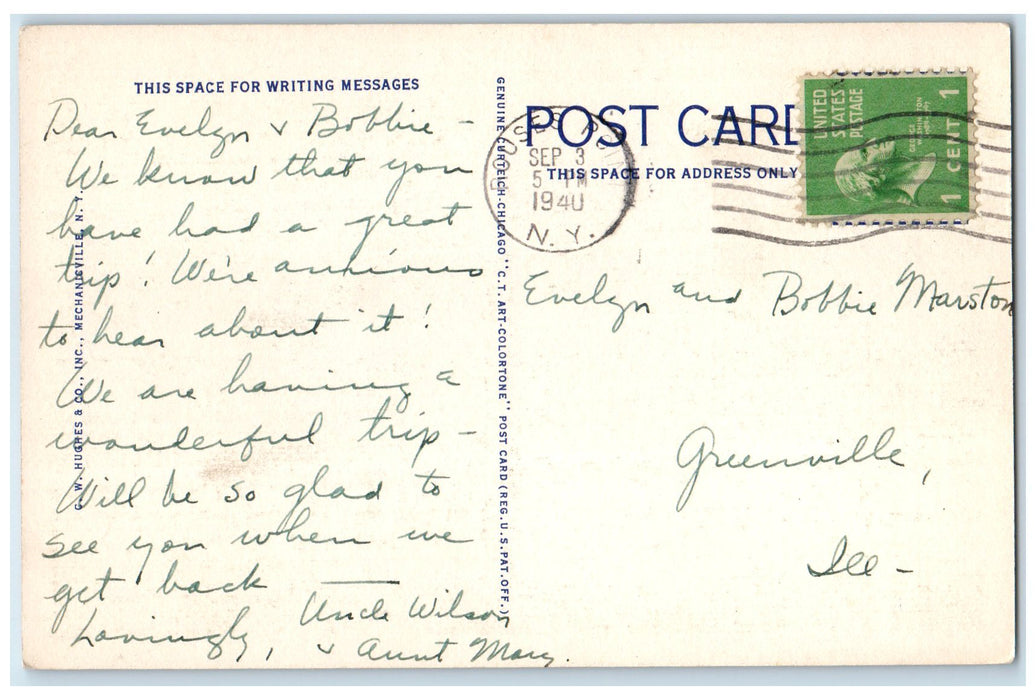 THIS SPACE FOR WRITING MESSAGES
Dear Evelyn & Bobbie -
We know that you
have had a great
trip! We're anxious
to hear about it!
We are having a
wonderful trip -
Will be so glad to
see you when we
get back
Lovingly, Uncle Wilson
& Aunt Mary.
C. W. HUGHES & CO., INC., MECHANICVILLE, N. Y.
GENUINE CURTEICH-CHICAGO "C.T. ART-COLORTONE" POST CARD (REG. U.S. PAT. OFF.)
POST CARD
THIS SPACE FOR ADDRESS ONLY
SEP 3
5 PM
1940
N. Y.
UNITED
STATES
POSTAGE
GEORGE
WASHINGTON
1 CENT 1
Evelyn and Bobbie Marston
Greenville,
Ill -